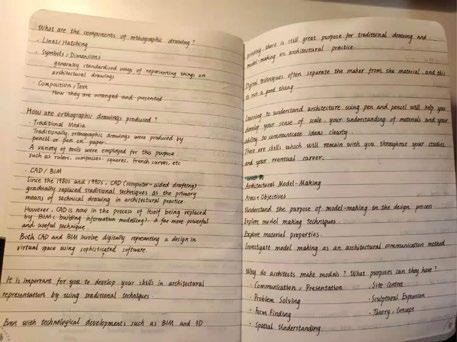 What are the components of orthographic drawing?
- Lines/Hatching
- Symbols/Dimensions
generally standardised ways of representing things on
architectural drawings
- Composition/Text
How they are arranged and presented
How are orthographic drawings produced?
- Traditional Media
Traditionally orthographic drawings were produced by
pencil or pen on paper.
A variety of tools were employed for this purpose
such as rulers, compasses, squares, french curves, etc
- CAD/BIM
Since the 1980s and 1990s, CAD (computer-aided drafting)
gradually replaced traditional techniques as the primary
means of technical drawing in architectural practice
However, CAD is now in the process of itself being replaced
by BIM (building information modelling), a far more powerful
and useful technique
Both CAD and BIM involve digitally representing a design in
virtual space using sophisticated software.
It is important for you to develop your skills in architectural
representation by using traditional techniques
Even with technological developments such as BIM and 3D
printing, there is still great purpose for traditional drawing and
model-making in architectural practice
Digital techniques often separate the maker from the material, and this
is not a good thing
Learning to understand architecture using pen and pencil will help you
develop your sense of scale, your understanding of materials and your
ability to communicate ideas clearly.
These are skills which will remain with you throughout your studies
and your eventual career.
Architectural Model-Making
Aims + Objectives
Understand the purpose of model-making in the design process
Explore model making techniques
Explore material properties
Investigate model making as an architectural communication method
Why do architects make models? What purposes can they have?
- Communication/Presentation
- Problem Solving
- Form Finding
- Spatial Understanding
- Site Context
- Sculptural Expression
- Theory/Concept